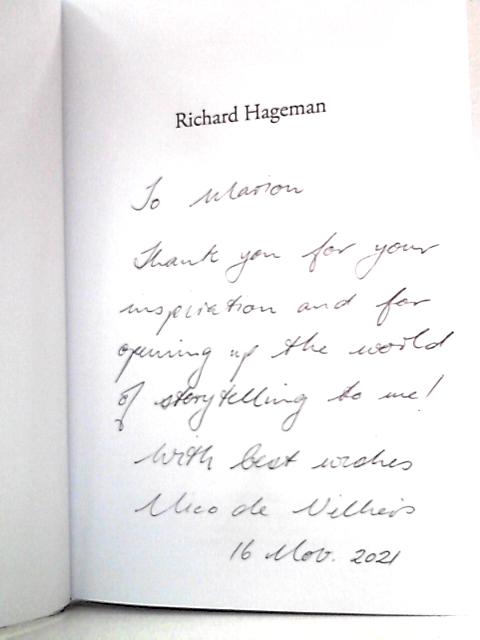 Richard Hageman
To Marion
Thank you for your
inspiration and for
opening up the world
of storytelling to me!
With best wishes
Nico de Villiers
16 Nov. 2021